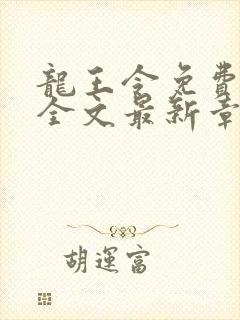 龍王令免費
全文最新章
胡運富